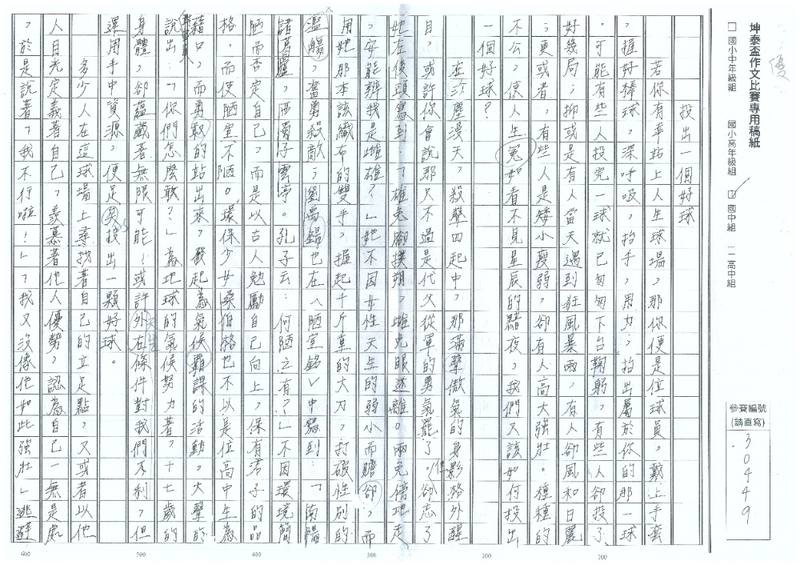 優
坤泰盃作文比賽專用稿紙
□ 國小中年級組 國小高年級組 ☑ 國中組 高中組
參賽編號
(請直寫)
30449
投出一個好球
若你有幸站上人生球場,那你便是位球員,戴上手套
,握好棒球,深呼吸,抬手,用力,拍出屬於你的那一球
。可能有些人投完一球就已匆匆下台鞠躬,有些人卻投了
好幾局;抑或是有人當天遇到狂風暴雨,有人卻風和日麗
;更或者,有些人是矮小瘦弱,卻有人高大強壯。種種的
不公,使人生宛如看不見星辰的黯夜,我們又該如何投出
一個好球?
在沙塵漫天,殺聲四起中,那滿聲傲氣的身影格外醒
目,或許你會說那只不過是代父從軍的勇氣罷了,卻忘了
她在後頭寫到「雄兔腳撲朔,雌兔眼迷離。兩兔傍地走
,安能辨我是雄雌?」她不因女性天生的弱小而膽卻,而
用她那本該織布的雙手,握起千斤重的大刀,打破性別的
濫觴,奮勇殺敵;劉禹錫也在〈陋室銘〉中寫到:「南陽
諸葛廬,西蜀子雲亭。孔子云:何陋之有?」不因環境簡
陋而否定自己,而是以古人勉勵自己向上,保有君子的品
格,而使陋室不陋。環保少女桑伯格也不以是位高中生為
藉口,而勇敢的站出來,發起為氣候罷課的活動,大聲的
說出「你們怎麼敢?」為地球的氣候努力著,十七歲的
身體,卻蘊藏著無限可能!或許外在條件對我們不利,但
運用手中資源,便足夠投出一顆好球。
多少人在這球場上尋找著自己的立足點,又或者以他
人目光定義著自己,羨慕著他人優勢,認為自己一無是處
,於是說著「我不行啦!」「我又沒像他如此強壯」逃避
600
500
400
300
200
100